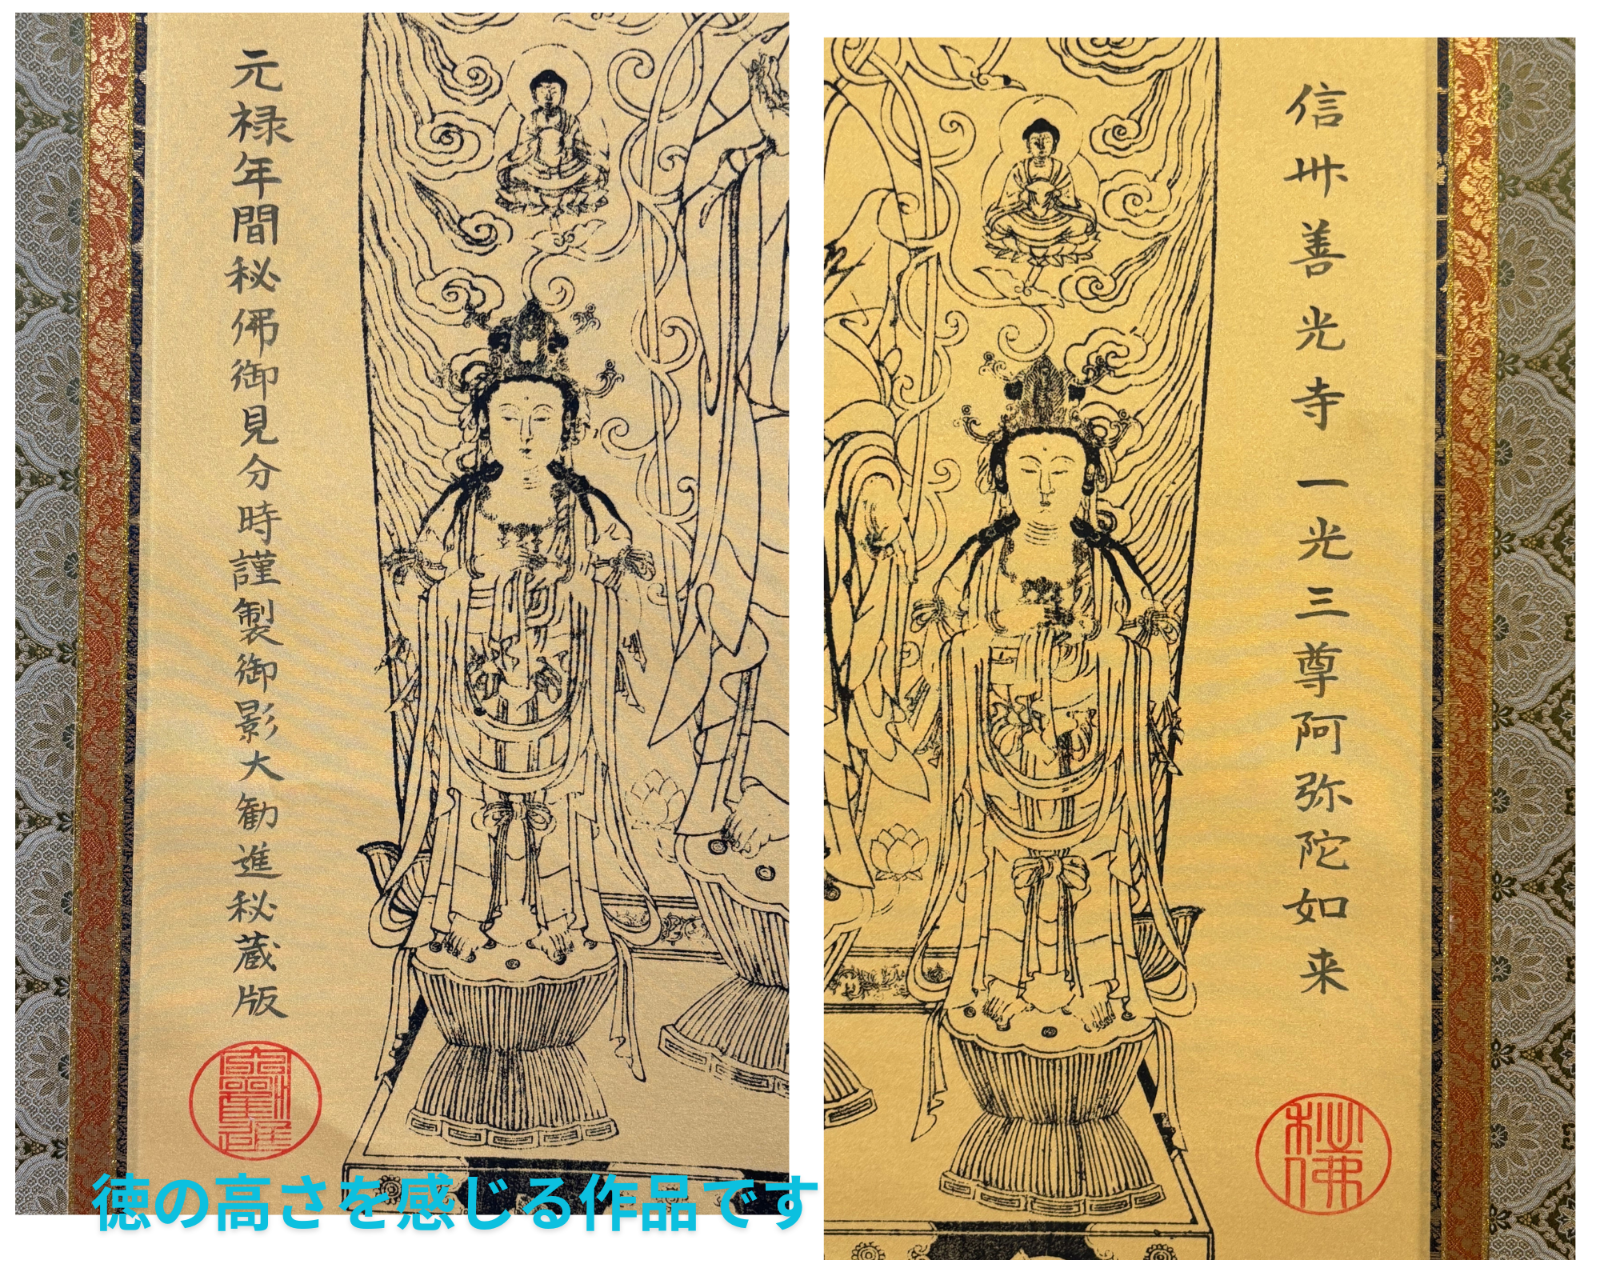 元禄年間秘佛御見分時謹製御影大勧進秘蔵版
信州善光寺一光三尊阿弥陀如来
秘佛
徳の高さを感じる作品です